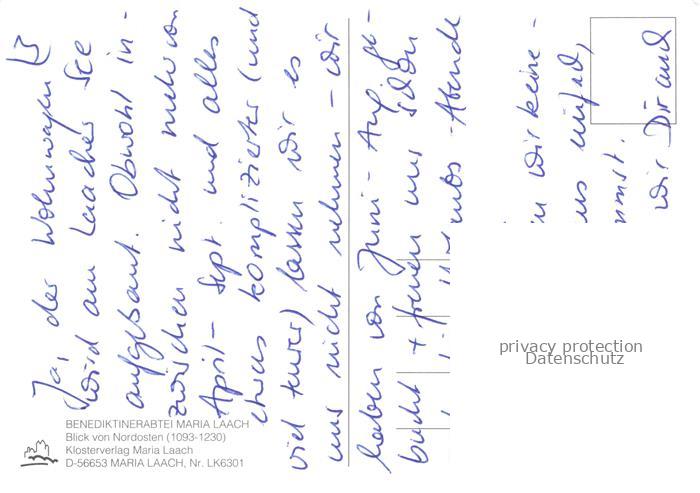 Ja, der Wohnwagen
wird am Laacher See
aufgebaut. Obwohl in-
zwischen nicht mehr von
April - Sept. und alles
etwas komplizierter (und
viel teurer) lassen wir es
uns nicht nehmen - wir
haben von Juni - Aug. ge-
bucht + freuen uns schon
Abende
in wir keine -
uns
wir Dir auch
BENEDIKTINERABTEI MARIA LAACH
Blick von Nordosten (1093-1230)
Klosterverlag Maria Laach
D-56653 MARIA LAACH, Nr. LK6301
privacy protection
Datenschutz